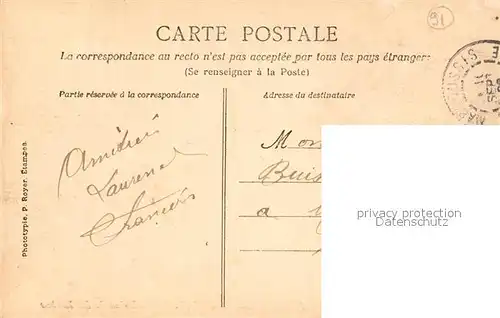 91
CARTE POSTALE
La correspondance au recto n'est pas acceptée par tous les pays étrangers
(Se renseigner à la Poste)
Partie réservée à la correspondance
Adresse du destinataire
Amitiés
Laurence
François
Mon
Buis
a
privacy protection
Datenschutz
Phototypie. P. Royer. Étampes